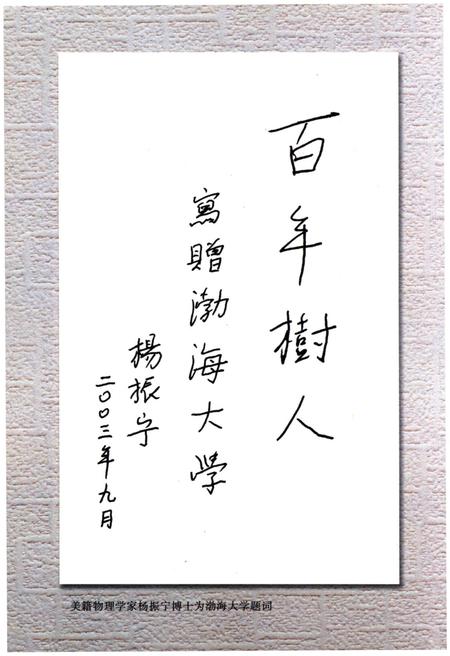 百年樹人
寫贈渤海大學
楊振宁
二〇〇三年九月
美籍物理学家杨振宁博士为渤海大学题词